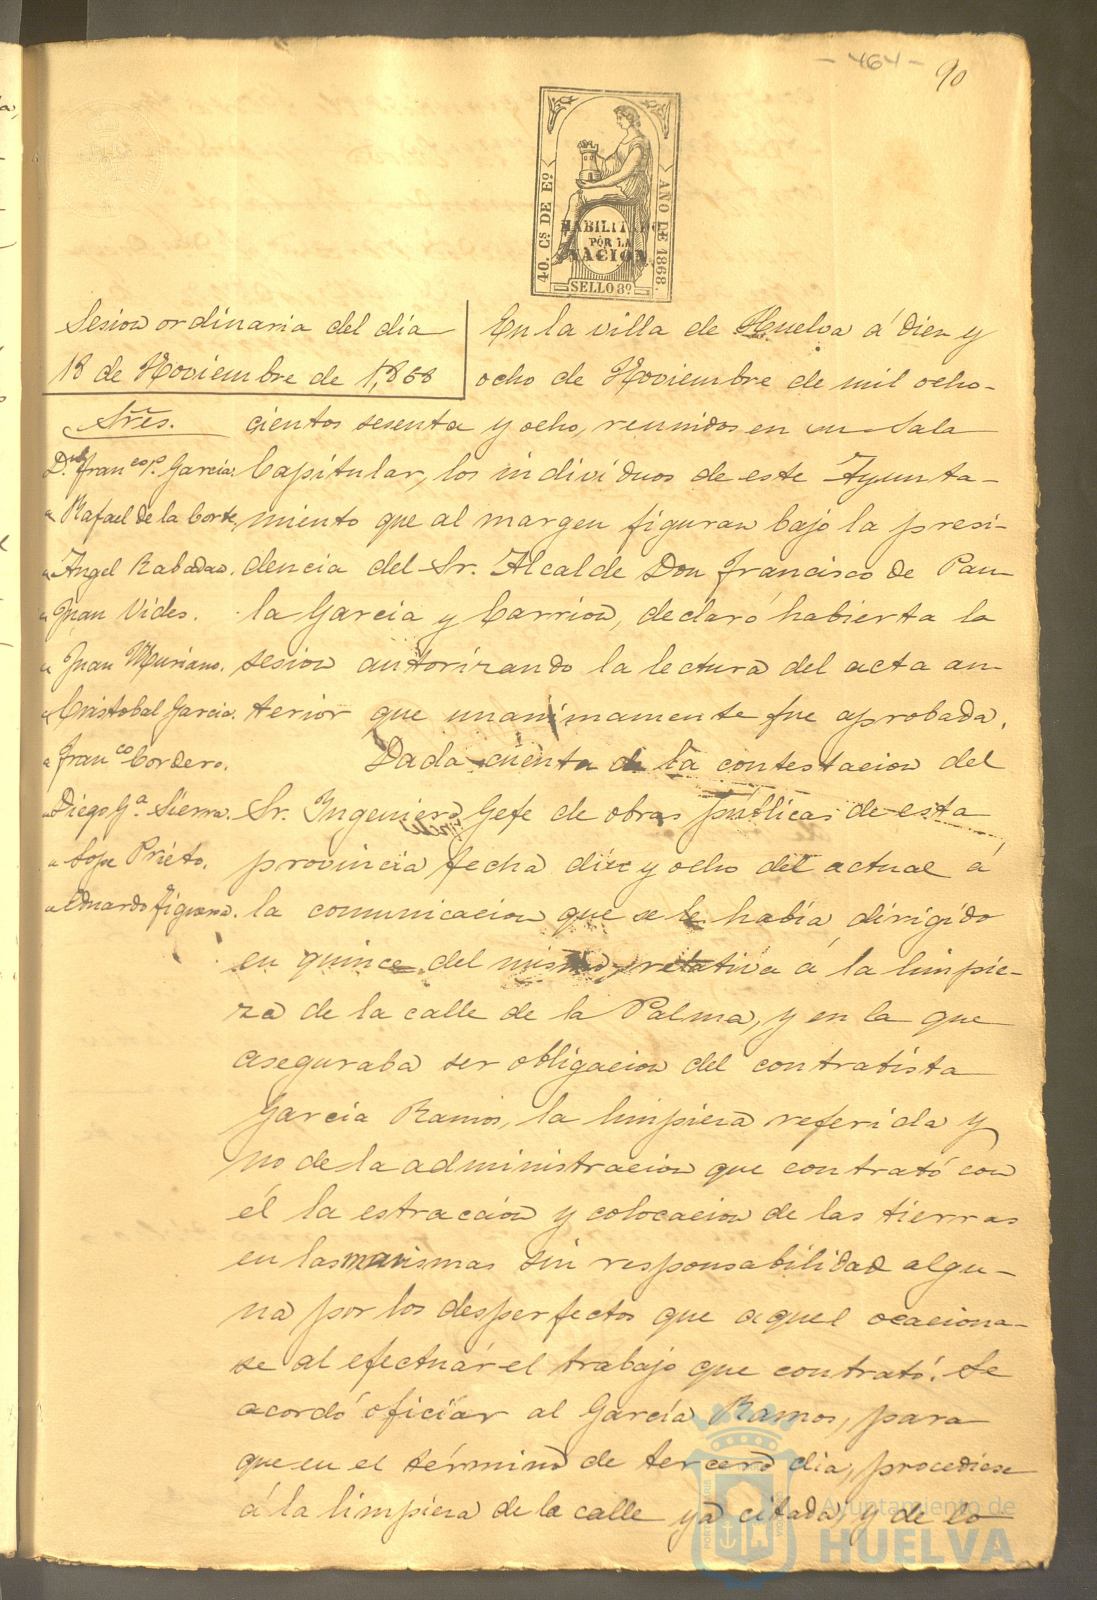 - 464 -
90
40. Cs. DE Eo.
AÑO DE 1868.
HABILITADO
POR LA
NACION
SELLO 8º
Sesion ordinaria del dia
18 de Noviembre de 1,868
Sres.
D.n Franco. P. García.
" Rafael de la Corte,
" Angel Rabadan.
" Juan Vides.
" Juan Muriano.
" Cristobal Garcia.
" Franco Cordero.
" Diego Ga. Sierra.
" Lope Prieto.
" Eduardo Figueroa.
En la villa de Huelva á diez y
ocho de Noviembre de mil ocho-
cientos sesenta y ocho, reunidos en su Sala
Capitular, los individuos de este Ayunta-
miento que al margen figuran bajo la presi-
dencia del Sr. Alcalde Don Francisco de Pau-
la Garcia y Carrion, declaró habierta la
sesion autorizando la lectura del acta an-
terior que unanimamente fue aprobada.
Dada cuenta de la contestacion del
Sr. Ingeniero Gefe de obras públicas de esta
provincia fecha diez y ocho del actual á
la comunicacion que se le había dirigido
en quince del mismo, relativa á la limpie-
za de la calle de la Palma, y en la que
aseguraba ser obligacion del contratista
Garcia Ramos, la limpieza referida y
no de la administracion que contrató con
él la estraccion y colocacion de las tierras
en las marismas sin responsabilidad algu-
na por los desperfectos que aquel ocaciona-
se al efectuár el trabajo que contrató: Se
acordó oficiar al García Ramos, para
que en el término de tercero dia, procediese
á la limpieza de la calle ya citada, y de lo
Ayuntamiento de
HUELVA